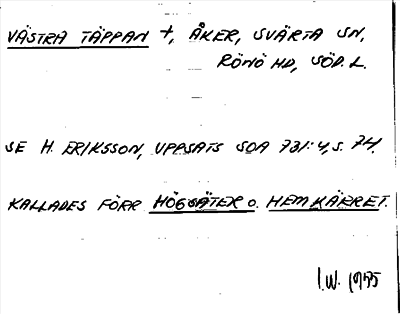 VÄSTRA TÄPPAN +, ÅKER, SVÄRTA SN,
RÖNÖ HD, SÖD. L.
SE H. ERIKSSON, UPPSATS SOA 731:4, S. 74.
KALLADES FÖRR HÖGSÄTER O. HEMKÄRRET.
I.W. 1975